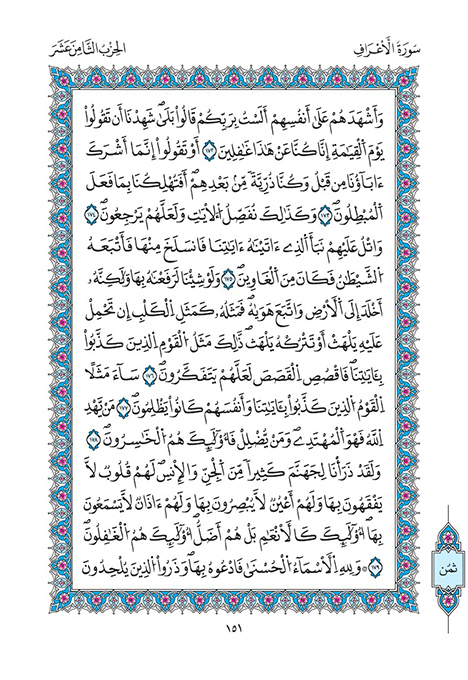 سُورَةُ الْأَعْرَافِ
الحِزْبُ الثَّامِنَ عَشَرَ
وَأَشْهَدَهُمْ عَلَىٰ أَنفُسِهِمْ أَلَسْتُ بِرَبِّكُمْ قَالُوا۟ بَلَىٰ شَهِدْنَا أَن تَقُولُوا۟
يَوْمَ الْقِيَٰمَةِ إِنَّا كُنَّا عَنْ هَٰذَا غَٰفِلِينَ ١٧٢ أَوْ تَقُولُوا۟ إِنَّمَا أَشْرَكَ
ءَابَآؤُنَا مِن قَبْلُ وَكُنَّا ذُرِّيَّةً مِّنۢ بَعْدِهِمْ أَفَتُهْلِكُنَا بِمَا فَعَلَ
الْمُبْطِلُونَ ١٧٣ وَكَذَٰلِكَ نُفَصِّلُ الْأٓيَٰتِ وَلَعَلَّهُمْ يَرْجِعُونَ ١٧٤
وَاتْلُ عَلَيْهِمْ نَبَأَ الَّذِے ءَاتَيْنَٰهُ ءَايَٰتِنَا فَانسَلَخَ مِنْهَا فَأَتْبَعَهُ
الشَّيْطَٰنُ فَكَانَ مِنَ الْغَاوِينَ ١٧٥ وَلَوْ شِئْنَا لَرَفَعْنَٰهُ بِهَا وَلَٰكِنَّهُۥ
أَخْلَدَ إِلَى الْأَرْضِ وَاتَّبَعَ هَوَيٰهُ فَمَثَلُهُۥ كَمَثَلِ الْكَلْبِ إِن تَحْمِلْ
عَلَيْهِ يَلْهَثْ أَوْ تَتْرُكْهُ يَلْهَث ذَّٰلِكَ مَثَلُ الْقَوْمِ الَّذِينَ كَذَّبُوا۟
بِـَٔايَٰتِنَا فَاقْصُصِ الْقَصَصَ لَعَلَّهُمْ يَتَفَكَّرُونَ ١٧٦ سَآءَ مَثَلًا
الْقَوْمُ الَّذِينَ كَذَّبُوا۟ بِـَٔايَٰتِنَا وَأَنفُسَهُمْ كَانُوا۟ يَظْلِمُونَ ١٧٧ مَنْ يَّهْدِ
اللَّهُ فَهُوَ الْمُهْتَدِے وَمَنْ يُّضْلِلْ فَأُو۟لَٰٓئِكَ هُمُ الْخَٰسِرُونَ ١٧٨
وَلَقَدْ ذَرَأْنَا لِجَهَنَّمَ كَثِيرًا مِّنَ الْجِنِّ وَالْإِنسِ لَهُمْ قُلُوبٌ لَّا
يَفْقَهُونَ بِهَا وَلَهُمْ أَعْيُنٌ لَّا يُبْصِرُونَ بِهَا وَلَهُمْ ءَاذَانٌ لَّا يَسْمَعُونَ
بِهَا أُو۟لَٰٓئِكَ كَالْأَنْعَٰمِ بَلْ هُمْ أَضَلُّ أُو۟لَٰٓئِكَ هُمُ الْغَٰفِلُونَ
١٧٩ وَلِلَّهِ الْأَسْمَآءُ الْحُسْنَىٰ فَادْعُوهُ بِهَا وَذَرُوا۟ الَّذِينَ يُلْحِدُونَ
ثُمُن
١٥١